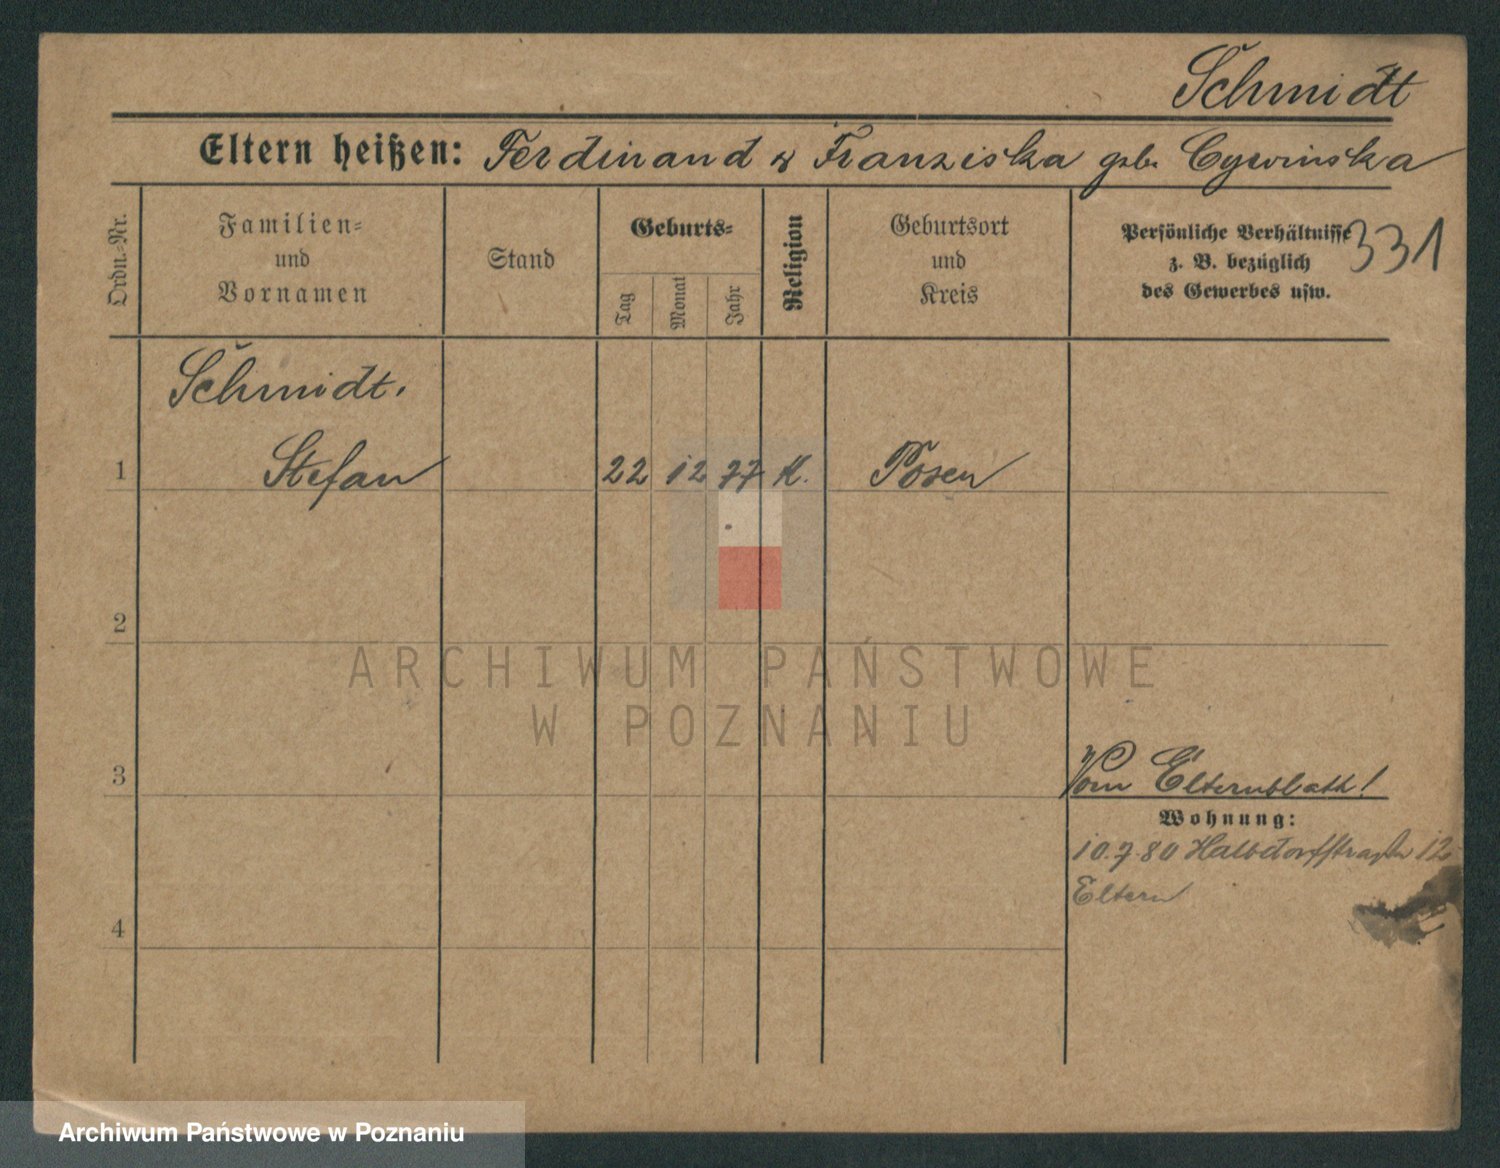 Schmidt
Eltern heißen: Ferdinand & Franziska geb. Cywinska
Ordn.-Nr.
Familien-
und
Vornamen
Stand
Geburts-
Tag
Monat
Jahr
Religion
Geburtsort
und
Kreis
Persönliche Verhältnisse
z. B. bezüglich
des Gewerbes usw.
331
Schmidt.
1 Stefan 22 12 77 K. Posen
2
ARCHIWUM PAŃSTWOWE
W POZNANIU
3
Vom Elternblatt!
Wohnung:
10.7.80 Halbdorfstraße 12
Eltern
4
Archiwum Państwowe w Poznaniu